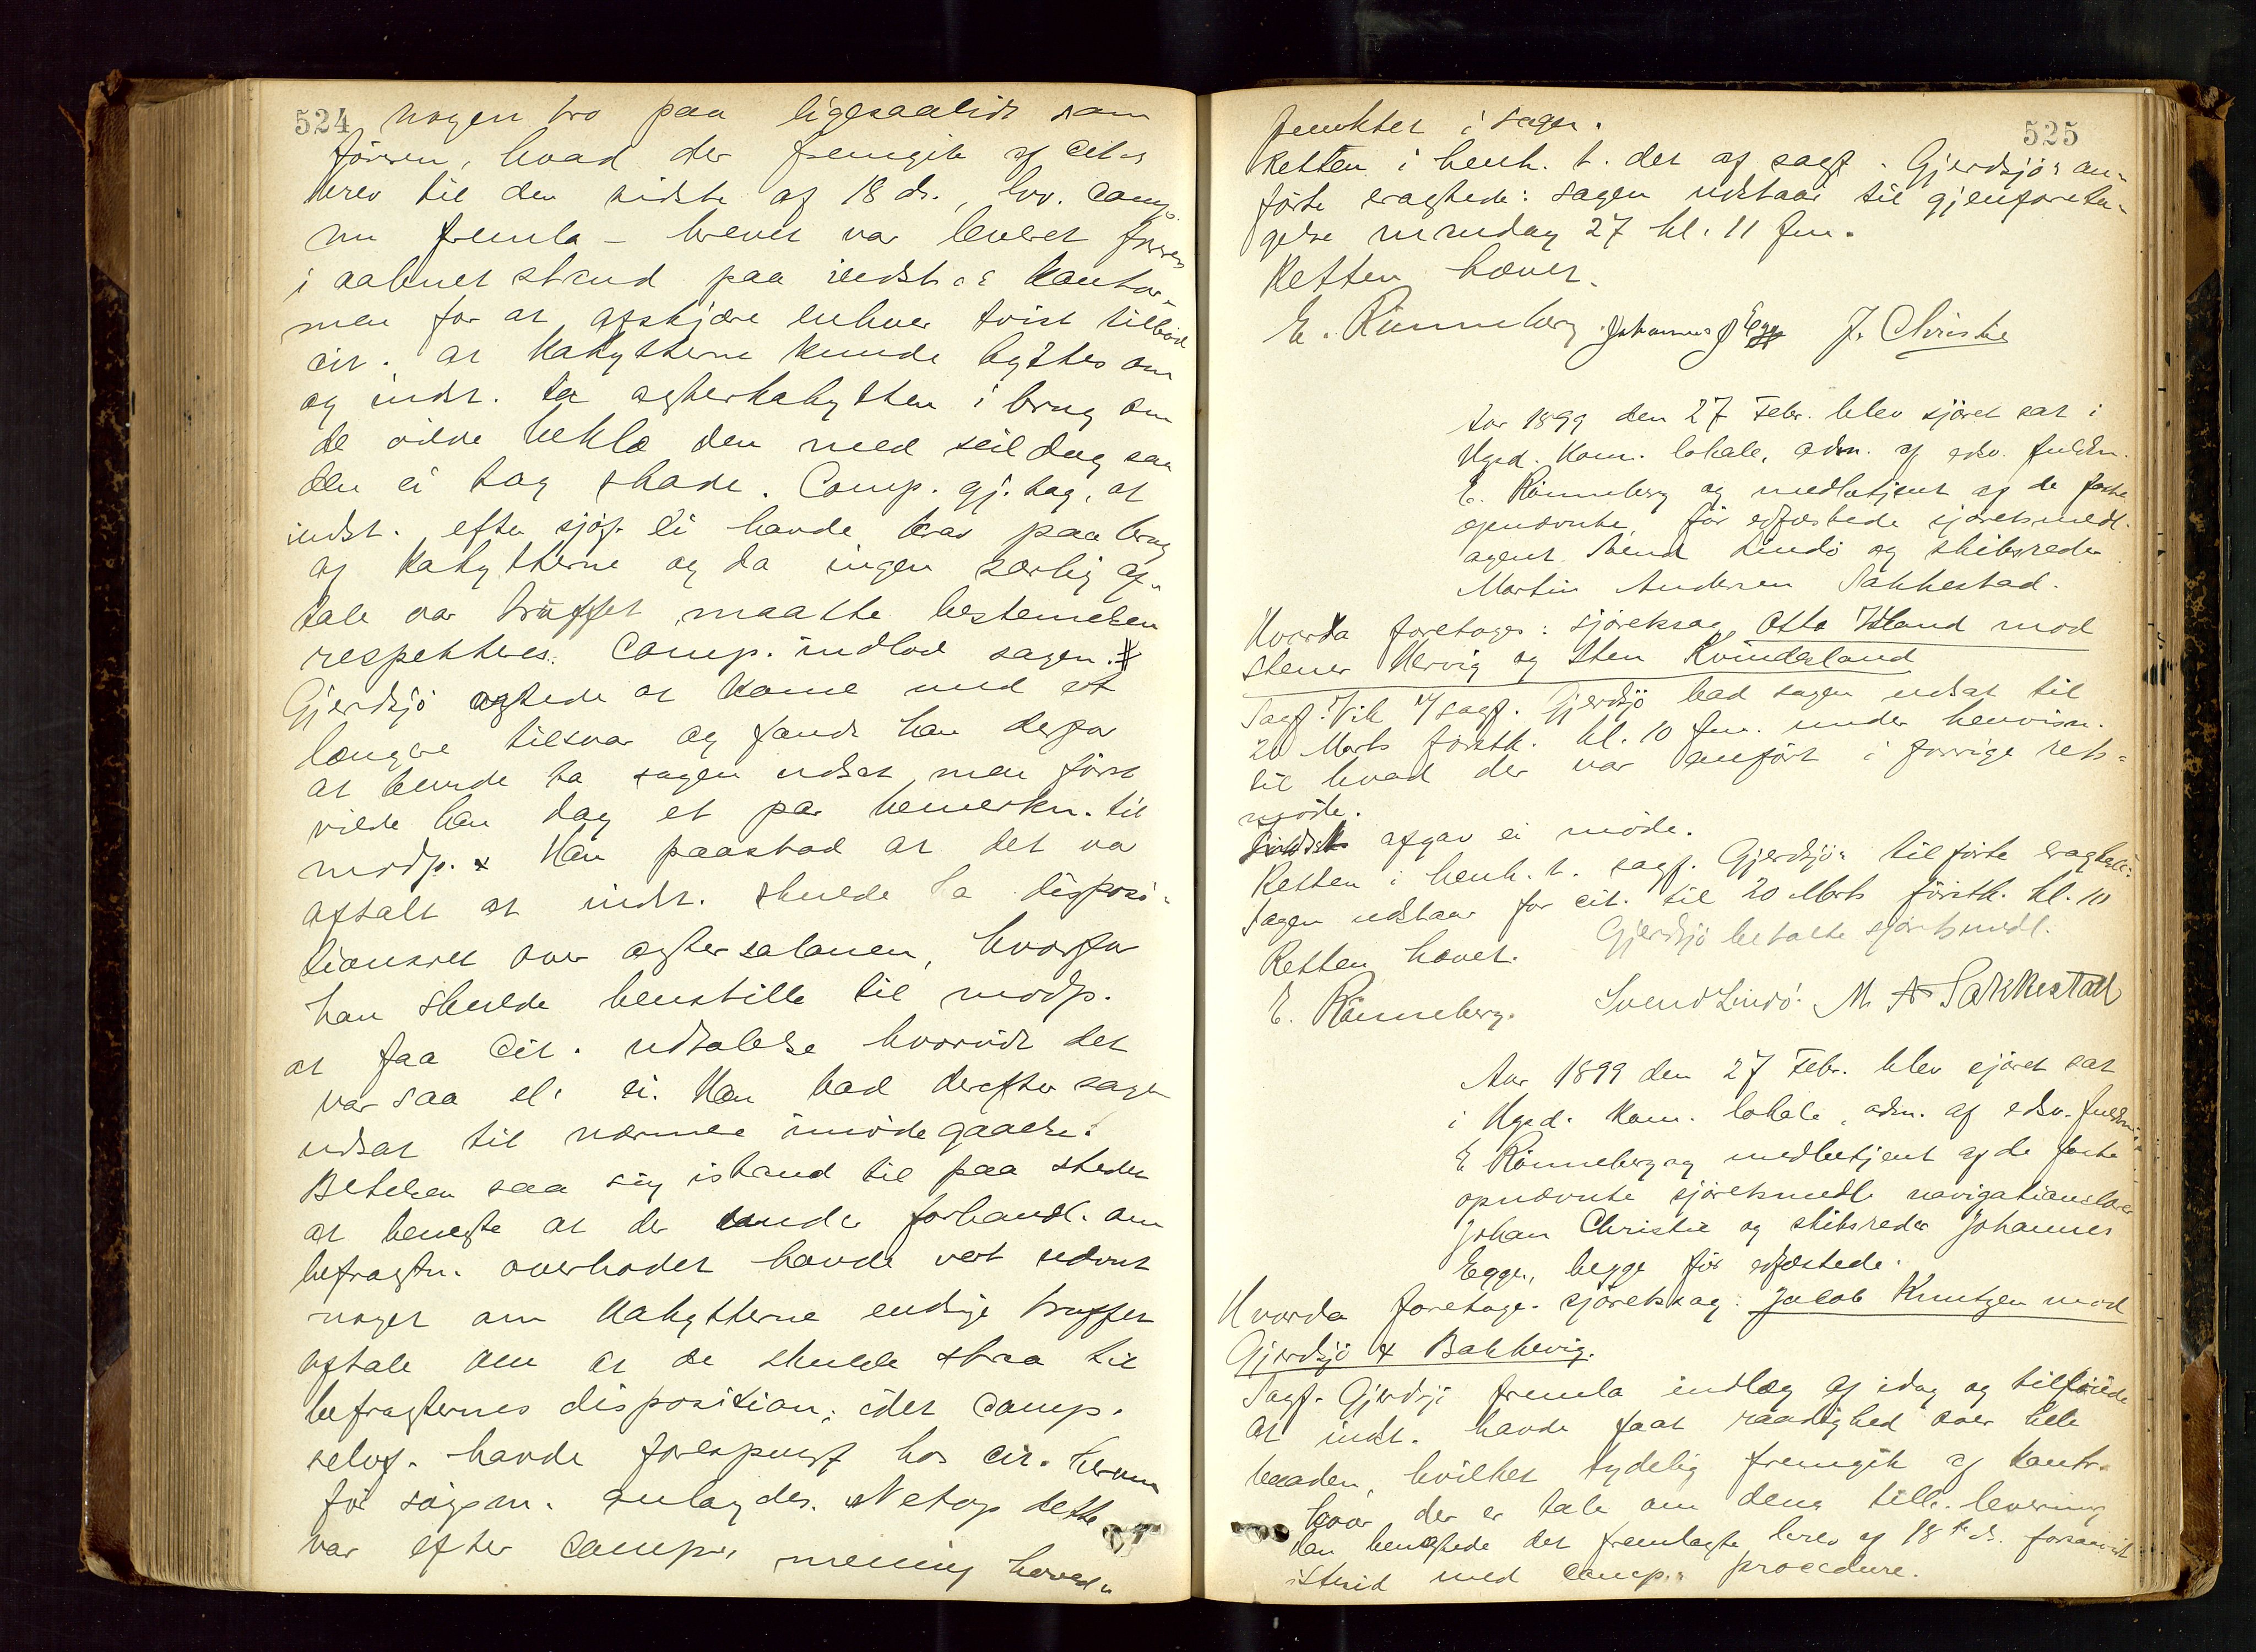 524 nogen tro paa ligesaalidt som
føreren, hvad der fremgik af cit.s
brev til den sidste af 18 ds., hv. comp.
nu fremla – brevet var leveret føreren
i aabnet stand paa indst.s kontor –
men for at afskjære enhver tvist tilbød
cit. at kahytterne kunde byttes om
og indst. ta agterkahytten i brug om
de vilde beklæ den med seildug saa
den ei tog skade. Comp. gj. tag. at
indst. efter sjøf. ei havde krav paa brug
af kahytterne og da ingen særlig af-
tale var truffet maatte bestemelsen
respekteres. Comp. indlod sagen.
Gjerdsjø agtede at kome med et
længere tilsvar og fandt han derfor
at burde ta sagen udsat, men først
vilde han dag et par bemerkn. til
modp. Han paastod at det var
aftalt at indst. skulde ha disposi-
tionsret over agtersalonen, hvorfor
han skulde henstille til modp.
at faa cit. udtalelse hvorvidt det
var saa el. ei. Han bad derefter sagen
udsat til nærmere imødegaaelse.
Betelsen saa sig istand til paa stedet
at benegte at der under forhandl. om
befragtn. overhodet havde vært nevnt
noget om kahytterne endsige truffet
aftale om at de skulde staa til
befragternes disposition, idet comp.
selvf. havde forespurgt hos cit. herom
før søgsm. anlagdes. Netop dette
var efter comp.s mening hoved-
525
punktet i sagen.
Retten i henh. t. det af sagf. Gjerdsjøs an-
førte eragtede: Sagen udstaar til gjenforeta-
gelse mandag 27 kl. 11 fm.
Retten hævet.
E. Rønneberg Johannes J Egge J. Christie
Aar 1899 den 27 Febr. blev sjøret sat i
Hgsd. kom. lokale, adm. af edsv. fuldm.
E. Rønneberg og medbetjent af de faste
opnævnte, før edfæstede sjøretsmedl.
agent Svend Lindø og skibsreder
Martin Andersen Sakkestad.
Hvorda foretoges: sjøretssag Otto Væland mod
Stener Hervig og Sten Kvindesland
Sagf. Vik v/ sagf. Gjerdsjø bad sagen udsat til
20 Marts førstk. kl. 10 fm. under henvisn.
til hvad der var anført i forrige rets-
møde.
Indst. afgav ei møde.
Retten i henh. t. sagf. Gjerdsjøs tilførte eragtede:
Sagen udstaar for cit. til 20 Marts førstk. kl. 10
Retten hævet. Gjerdsjø betalte sjøretsmedl.
E. Rønneberg. Svend Lindø. M A Sakkestad
Aar 1899 den 27 Febr. blev sjøret sat
i Hgsd. kom. lokale, adm. af edsv. fuldm.
E Rønneberg og medbetjent af de faste
opnævnte sjøretsmedl. navigationslærer
Johan Christie og skibsreder Johannes
Egge, begge før edfæstede.
Hvorda foretoges sjøretssag: Jacob Knutzen mod
Gjerdsjø & Bakkevig.
Sagf. Gjerdsjø fremla indlæg af idag og tilføiede
at indst. havde faat raadighed over hele
baaden, hvilket tydelig fremgik af kontr.
hvor der er tale om dens tilb. levering
Han benegtede det fremlagte brev af 18de ds. forsaavidt
istrid med comp.s procedure.